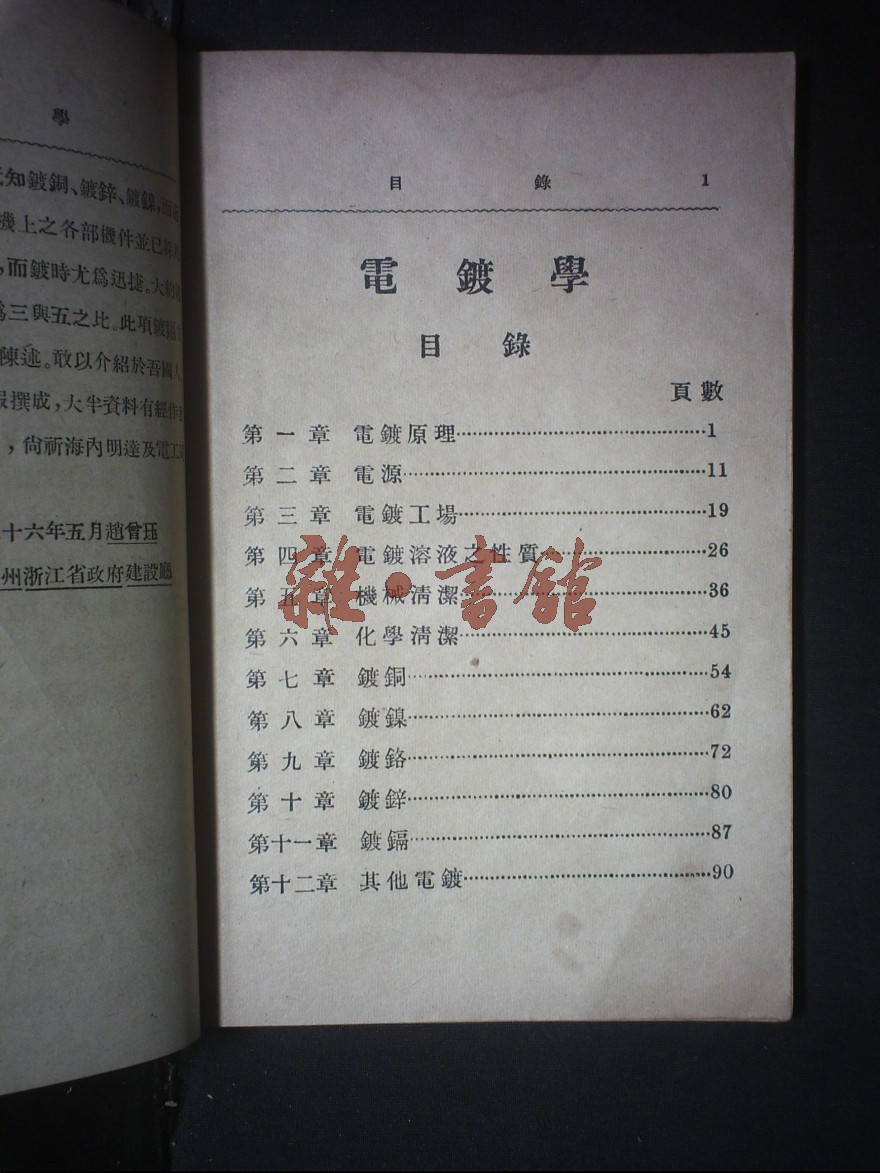 學
知鍍銅、鍍鋅、鍍鎳,
機上之各部機件並已
,而鍍時尤爲迅捷。大約
爲三與五之比。此項鍍鎘
陳述。敢以介紹於吾國人
撰成,大半資料有經作
,尙祈海內明達及電工
十六年五月趙曾珏
州浙江省政府建設廳
目錄 1
電鍍學
目錄
頁數
第一章 電鍍原理……1
第二章 電源……11
第三章 電鍍工場……19
第四章 電鍍溶液之性質……26
第五章 機械淸潔……36
第六章 化學淸潔……45
第七章 鍍銅……54
第八章 鍍鎳……62
第九章 鍍鉻……72
第十章 鍍鋅……80
第十一章 鍍鎘……87
第十二章 其他電鍍……90
雜·書館